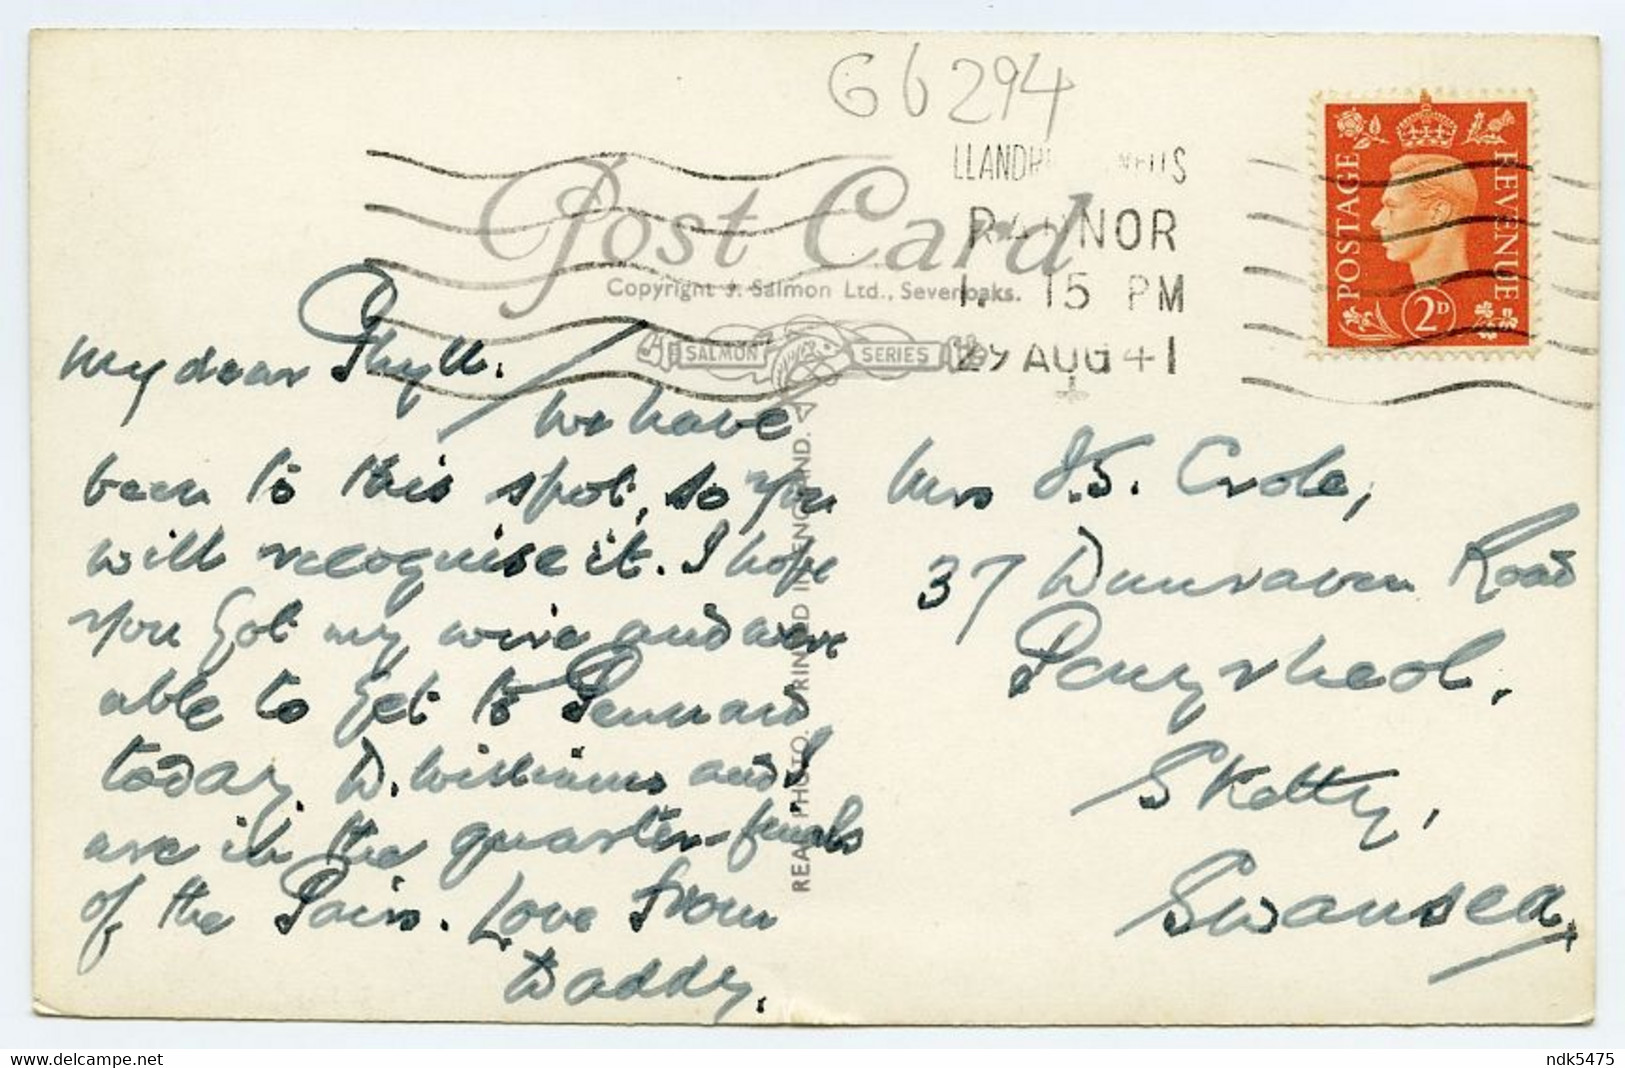 G6294
LLANDR WELLS
RADNOR
1. 15 PM
29 AUG 41
POSTAGE REVENUE
2D
Post Card
Copyright J. Salmon Ltd., Sevenoaks.
SALMON SERIES
REAL PHOTO. PRINTED IN ENGLAND.
My dear Phyll.
We have
been to this spot, so you
will recognise it. I hope
you got my wire and were
able to get to Pennard
today. D. Williams and I
are in the quarter-finals
of the Pairs. Love from
Daddy.
Mrs J.S. Crole,
37 Dunraven Road
Penyrheol.
Sketty,
Swansea.
delcampe.net
ndk5475